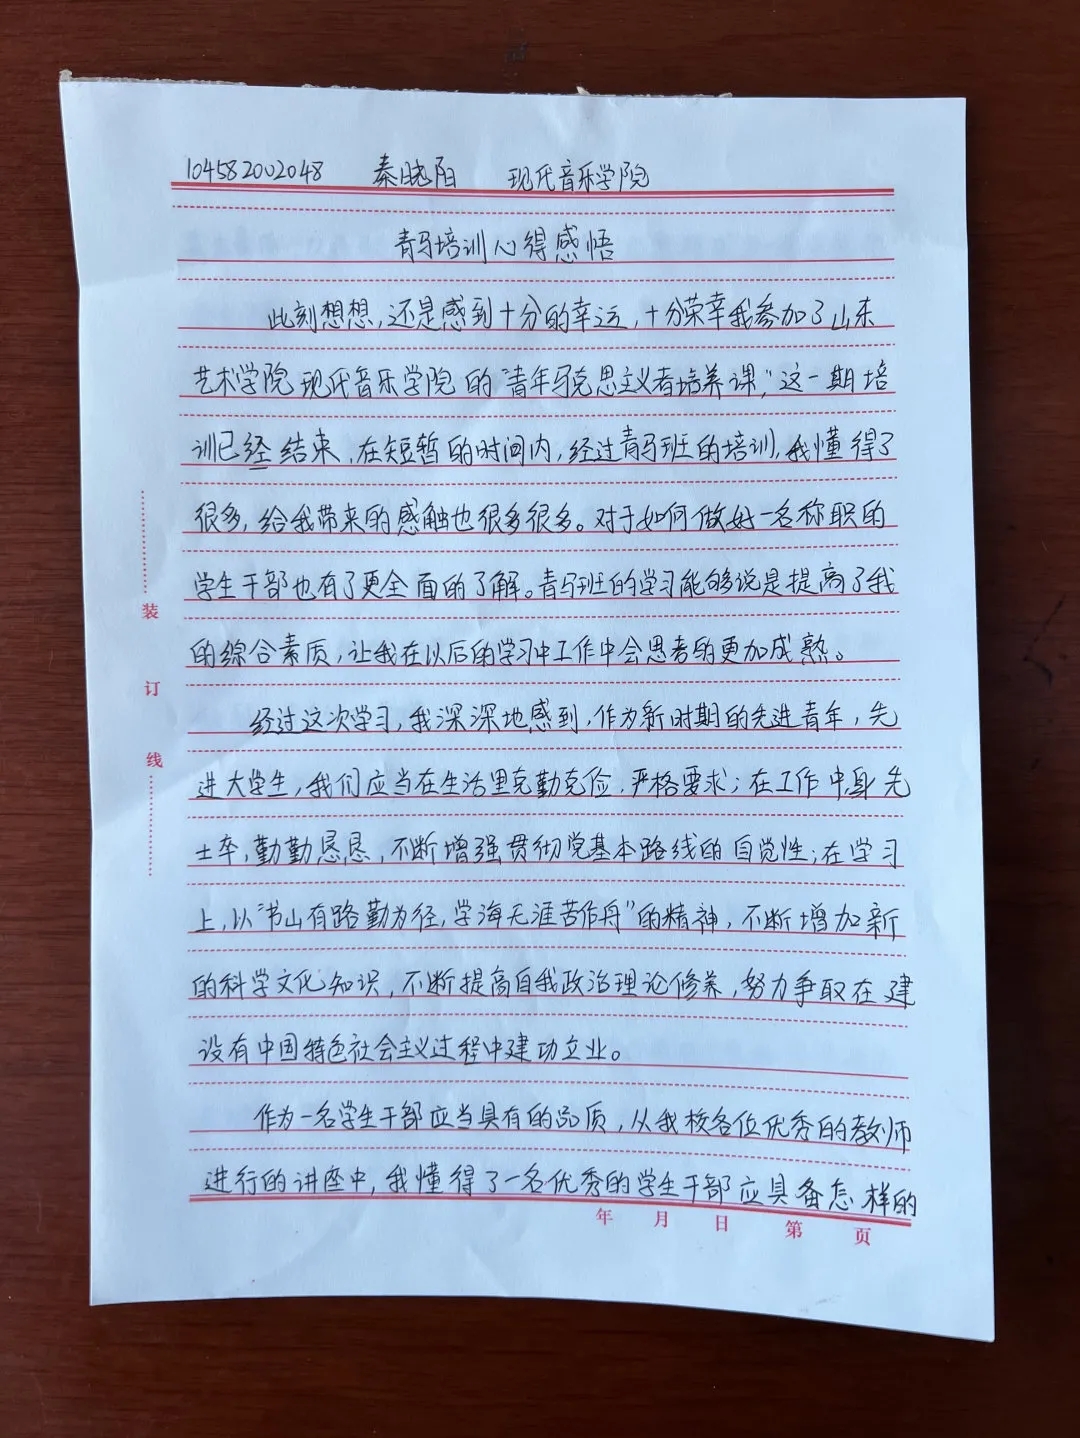 104582002048 秦晓阳 现代音乐学院
青马培训心得感悟
此刻想想，还是感到十分的幸运，十分荣幸我参加了山东
艺术学院现代音乐学院的“青年马克思主义者培养课，”这一期培
训已经结束，在短暂的时间内，经过青马班的培训，我懂得了
很多，给我带来的感触也很多很多。对于如何做好一名称职的
学生干部也有了更全面的了解。青马班的学习能够说是提高了我
的综合素质，让我在以后的学习中工作中会思考的更加成熟。
经过这次学习，我深深地感到，作为新时期的先进青年，先
进大学生，我们应当在生活里克勤克俭，严格要求；在工作中身先
士卒，勤勤恳恳，不断增强贯彻党基本路线的自觉性；在学习
上，以“书山有路勤为径，学海无涯苦作舟”的精神，不断增加新
的科学文化知识，不断提高自我政治理论修养，努力争取在建
设有中国特色社会主义过程中建功立业。
作为一名学生干部应当具有的品质，从我校各位优秀的教师
进行的讲座中，我懂得了一名优秀的学生干部应具备怎样的
装
订
线
年 月 日 第 页